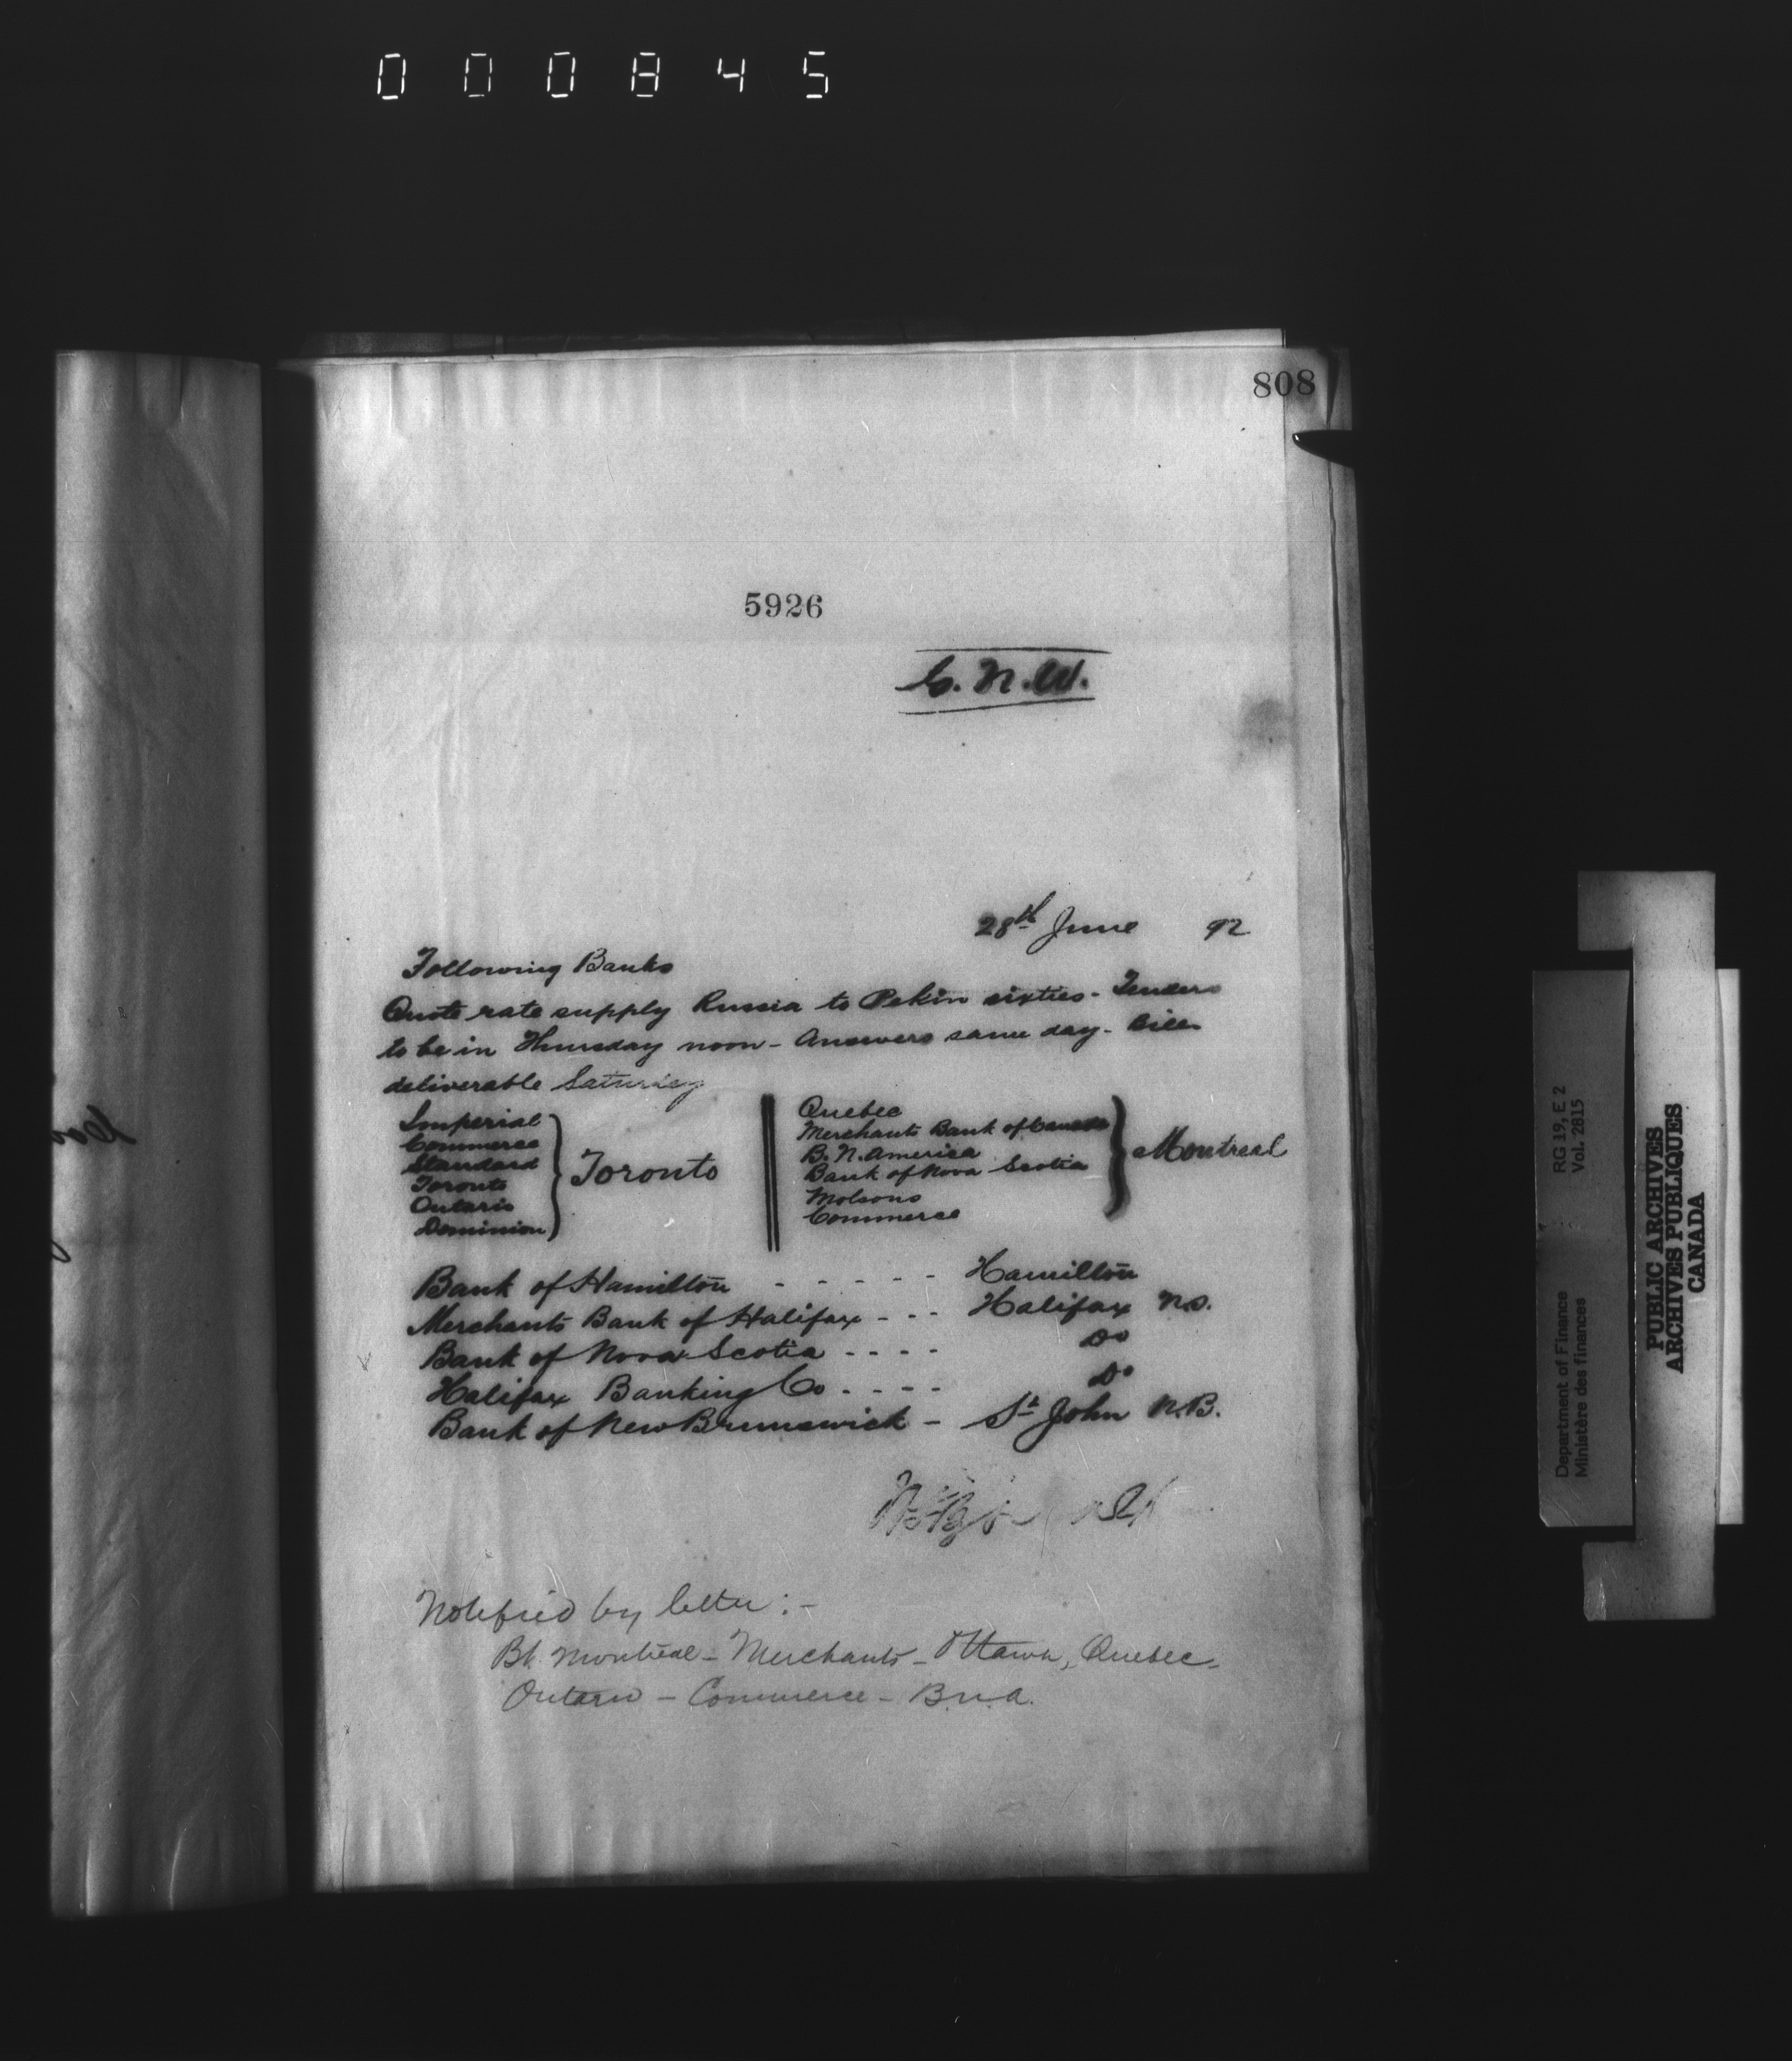 000845
808
5926
C.N.W.
28th June 92
Following Banks
Quote rate supply Russia to Pekin sixties - Tenders
to be in Thursday noon - Answers same day - Bills
deliverable Saturday
Imperial
Commerce
Standard
Toronto
Ontario
Dominion
Toronto
Quebec
Merchants Bank of Canada
B. N. America
Bank of Nova Scotia
Molsons
Commerce
Montreal
Bank of Hamilton - - - - - Hamilton
Merchants Bank of Halifax - - - Halifax N.S.
Bank of Nova Scotia - - - - Do
Halifax Banking Co - - - - Do
Bank of New Brunswick - St John N.B.
Notified by letter :-
Bk Montreal - Merchants - Ottawa, Quebec -
Ontario - Commerce - B.N.A.
Department of Finance RG 19, E 2
Ministère des finances Vol. 2815
PUBLIC ARCHIVES
ARCHIVES PUBLIQUES
CANADA